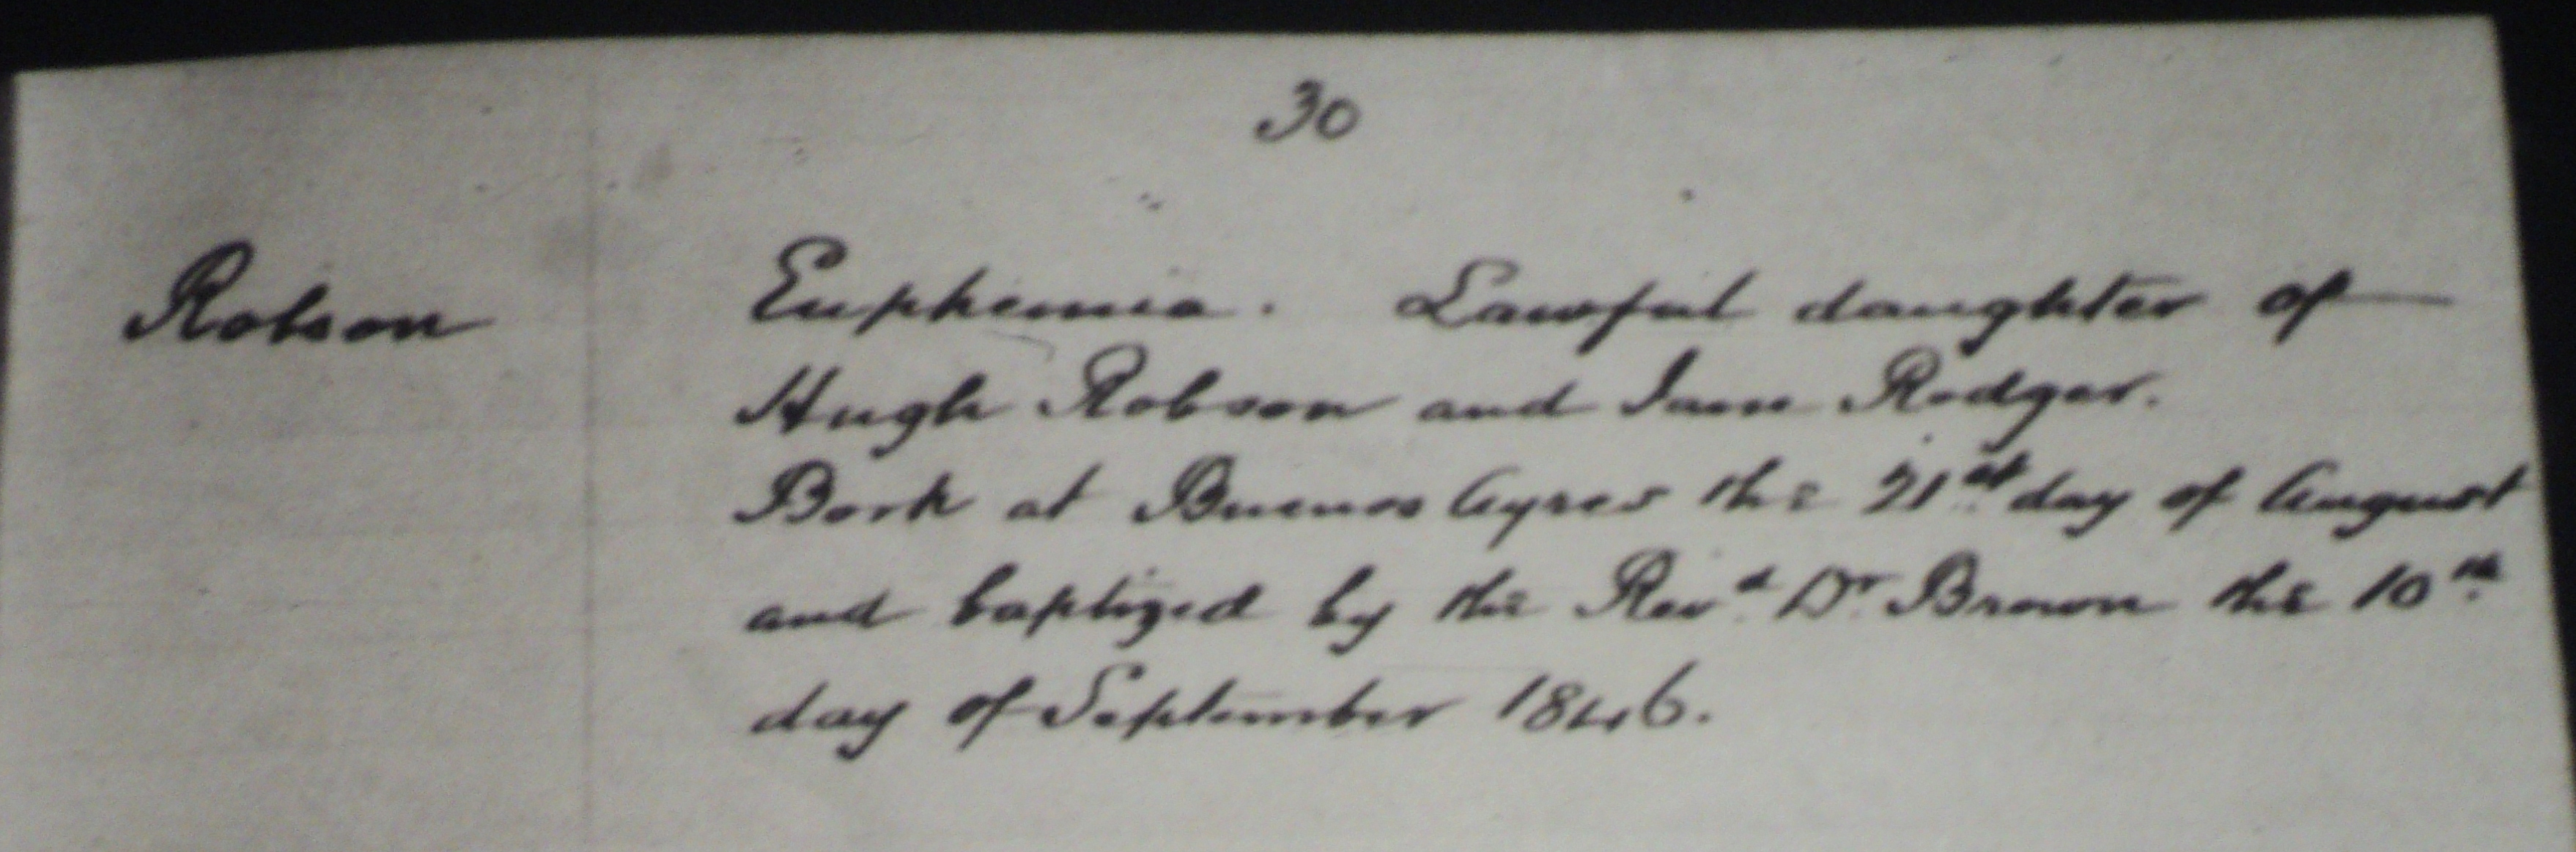 30
Robson
Euphemia. Lawful daughter of
Hugh Robson and Jane Rodger.
Bork at Buenos Ayres the 21st day of August
and baptized by the Revd Dr Brown the 10th
day of September 1846.